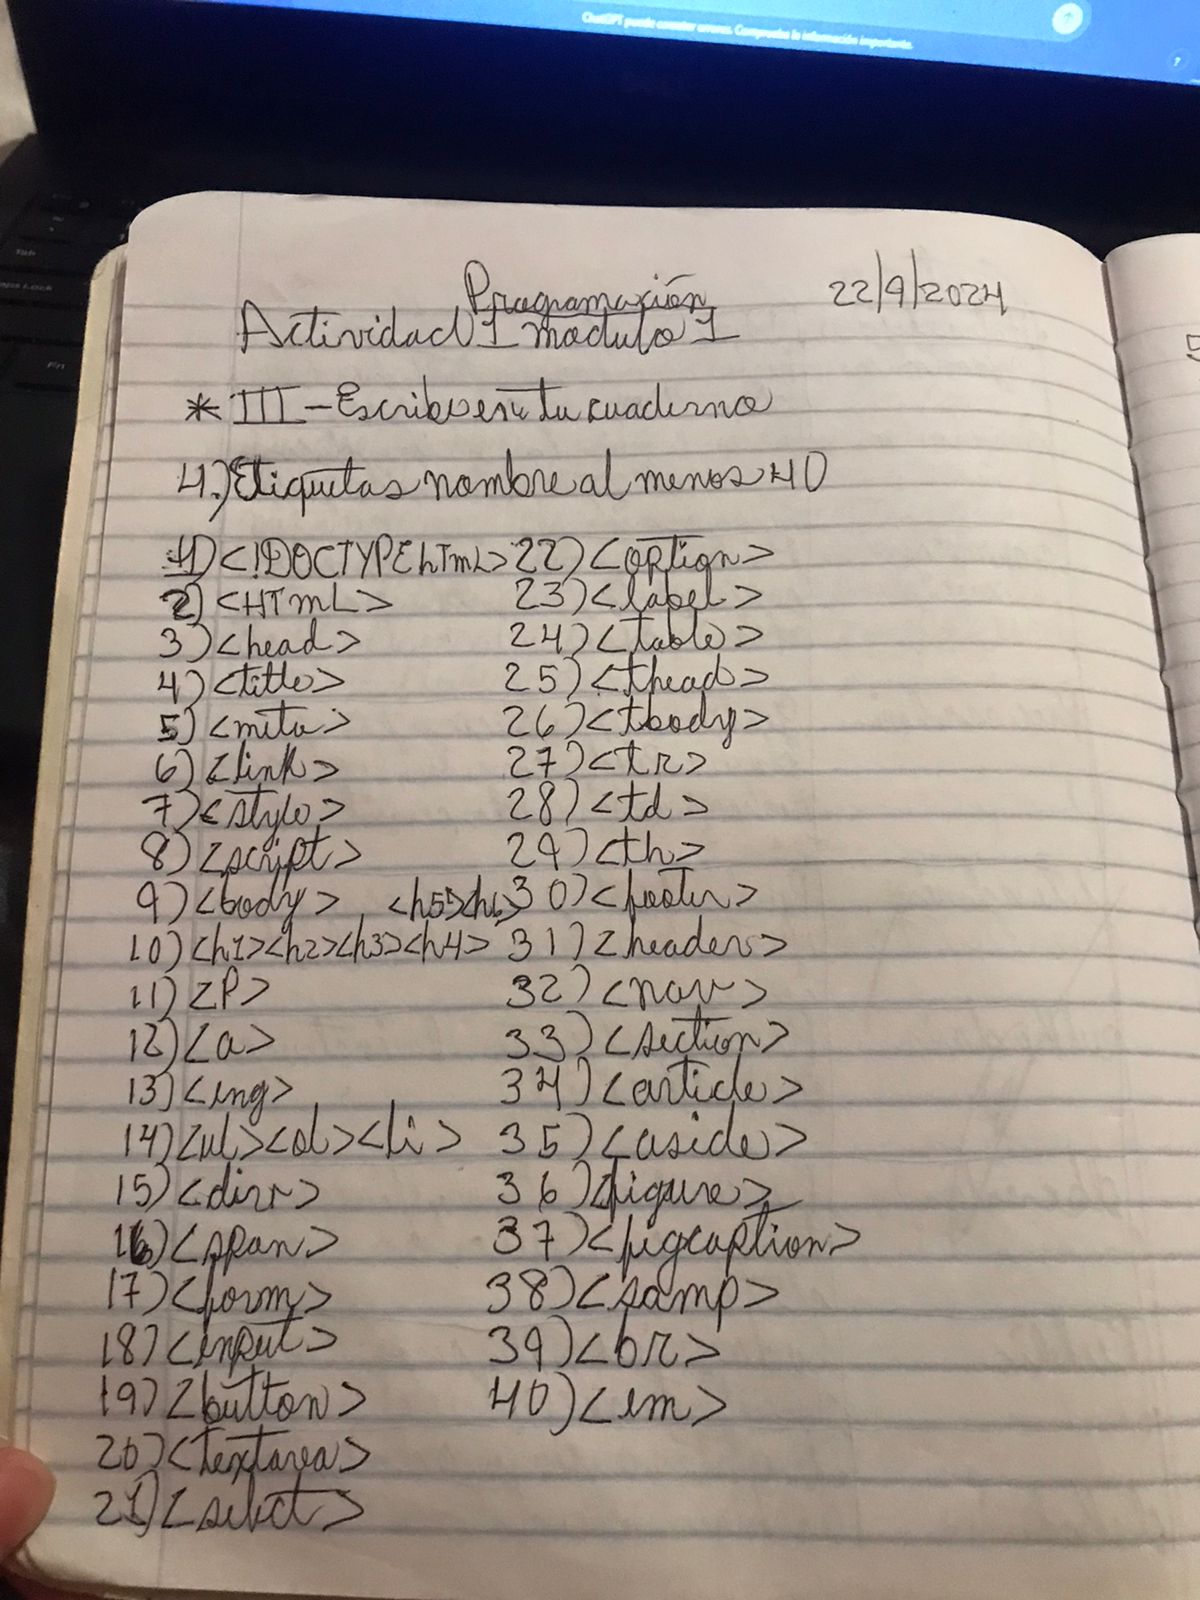 ChatGPT puede cometer errores. Comprueba la información importante.
?
Programación
22/9/2024
Actividad 1 modulo 1
* III - Escribe en tu cuaderno
4.) Etiquetas nombre al menos 40
1) <!DOCTYPE hTmL>
2) <HTmL>
3) <head>
4) <title>
5) <meta>
6) <link>
7) <style>
8) <script>
9) <body>
<h5><h6>
10) <h1><h2><h3><h4>
11) <P>
12) <a>
13) <ing>
14) <ul><ol><li>
15) <div>
16) <span>
17) <form>
18) <input>
19) <button>
20) <textarea>
21) <select>
22) <option>
23) <label>
24) <table>
25) <thead>
26) <tbody>
27) <tr>
28) <td>
29) <th>
30) <footer>
31) <header>
32) <nav>
33) <section>
34) <article>
35) <aside>
36) <figure>
37) <figcaption>
38) <samp>
39) <br>
40) <em>
5